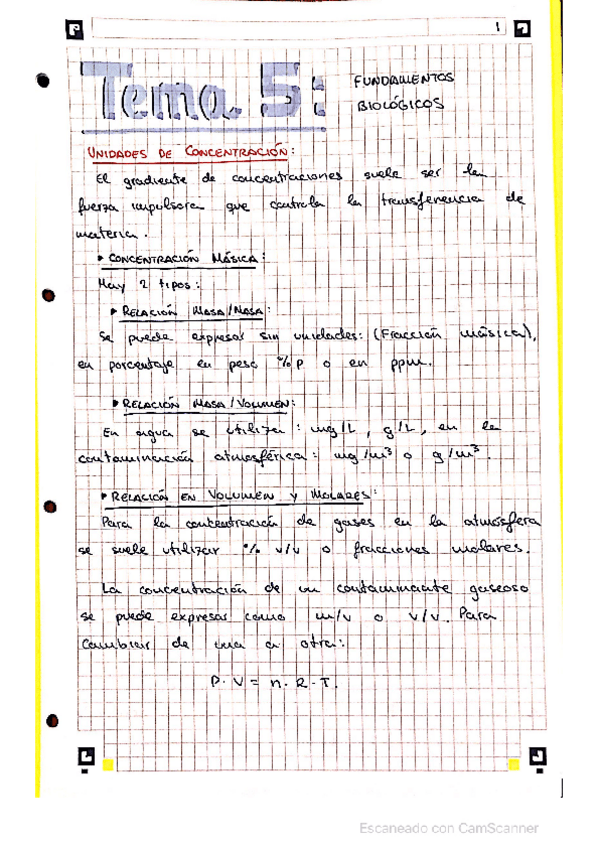 1
Tema 5:
FUNDAMENTOS
BIOLÓGICOS
UNIDADES DE CONCENTRACIÓN:
El gradiente de concentraciones suele ser la
fuerza impulsora que controla la transferencia de
materia.
• CONCENTRACIÓN MÁSICA:
Hay 2 tipos:
• RELACIÓN MASA/MASA:
Se puede expresar sin unidades: (Fracción másica),
en porcentaje en peso %p o en ppm.
• RELACIÓN MASA/VOLUMEN:
En agua se utiliza: mg/L, g/L, en la
contaminación atmosférica: mg/m³ o g/m³.
• RELACIÓN EN VOLUMEN Y MOLARES:
Para la concentración de gases en la atmósfera
se suele utilizar % v/v o fracciones molares.
La concentración de un contaminante gaseoso
se puede expresar como m/v o v/v. Para
cambiar de una a otra:
P·V = n·R·T.
Escaneado con CamScanner